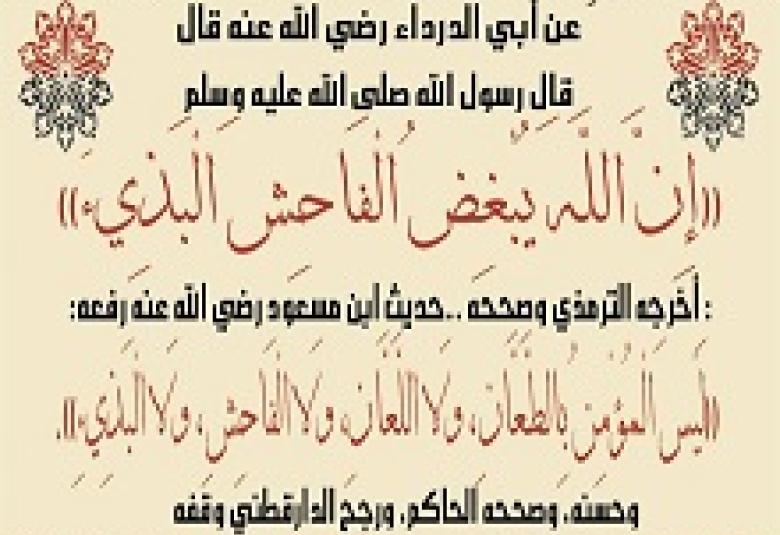 عن أبي الدرداء رضي الله عنه قال
قال رسول الله صلى الله عليه وسلم
((إِنَّ اللَّهَ يُبْغِضُ الْفَاحِشَ الْبَذِيءَ))
: أخرجه الترمذي وصححه ..حديث ابن مسعود رضي الله عنه رفعه:
((لَيْسَ الْمُؤْمِنُ بِالطَّعَّانِ، وَلَا اللَّعَّانِ، وَلَا الْفَاحِشِ، وَلَا الْبَذِيءِ)).
وحسنه، وصححه الحاكم، ورجح الدارقطني وقفه